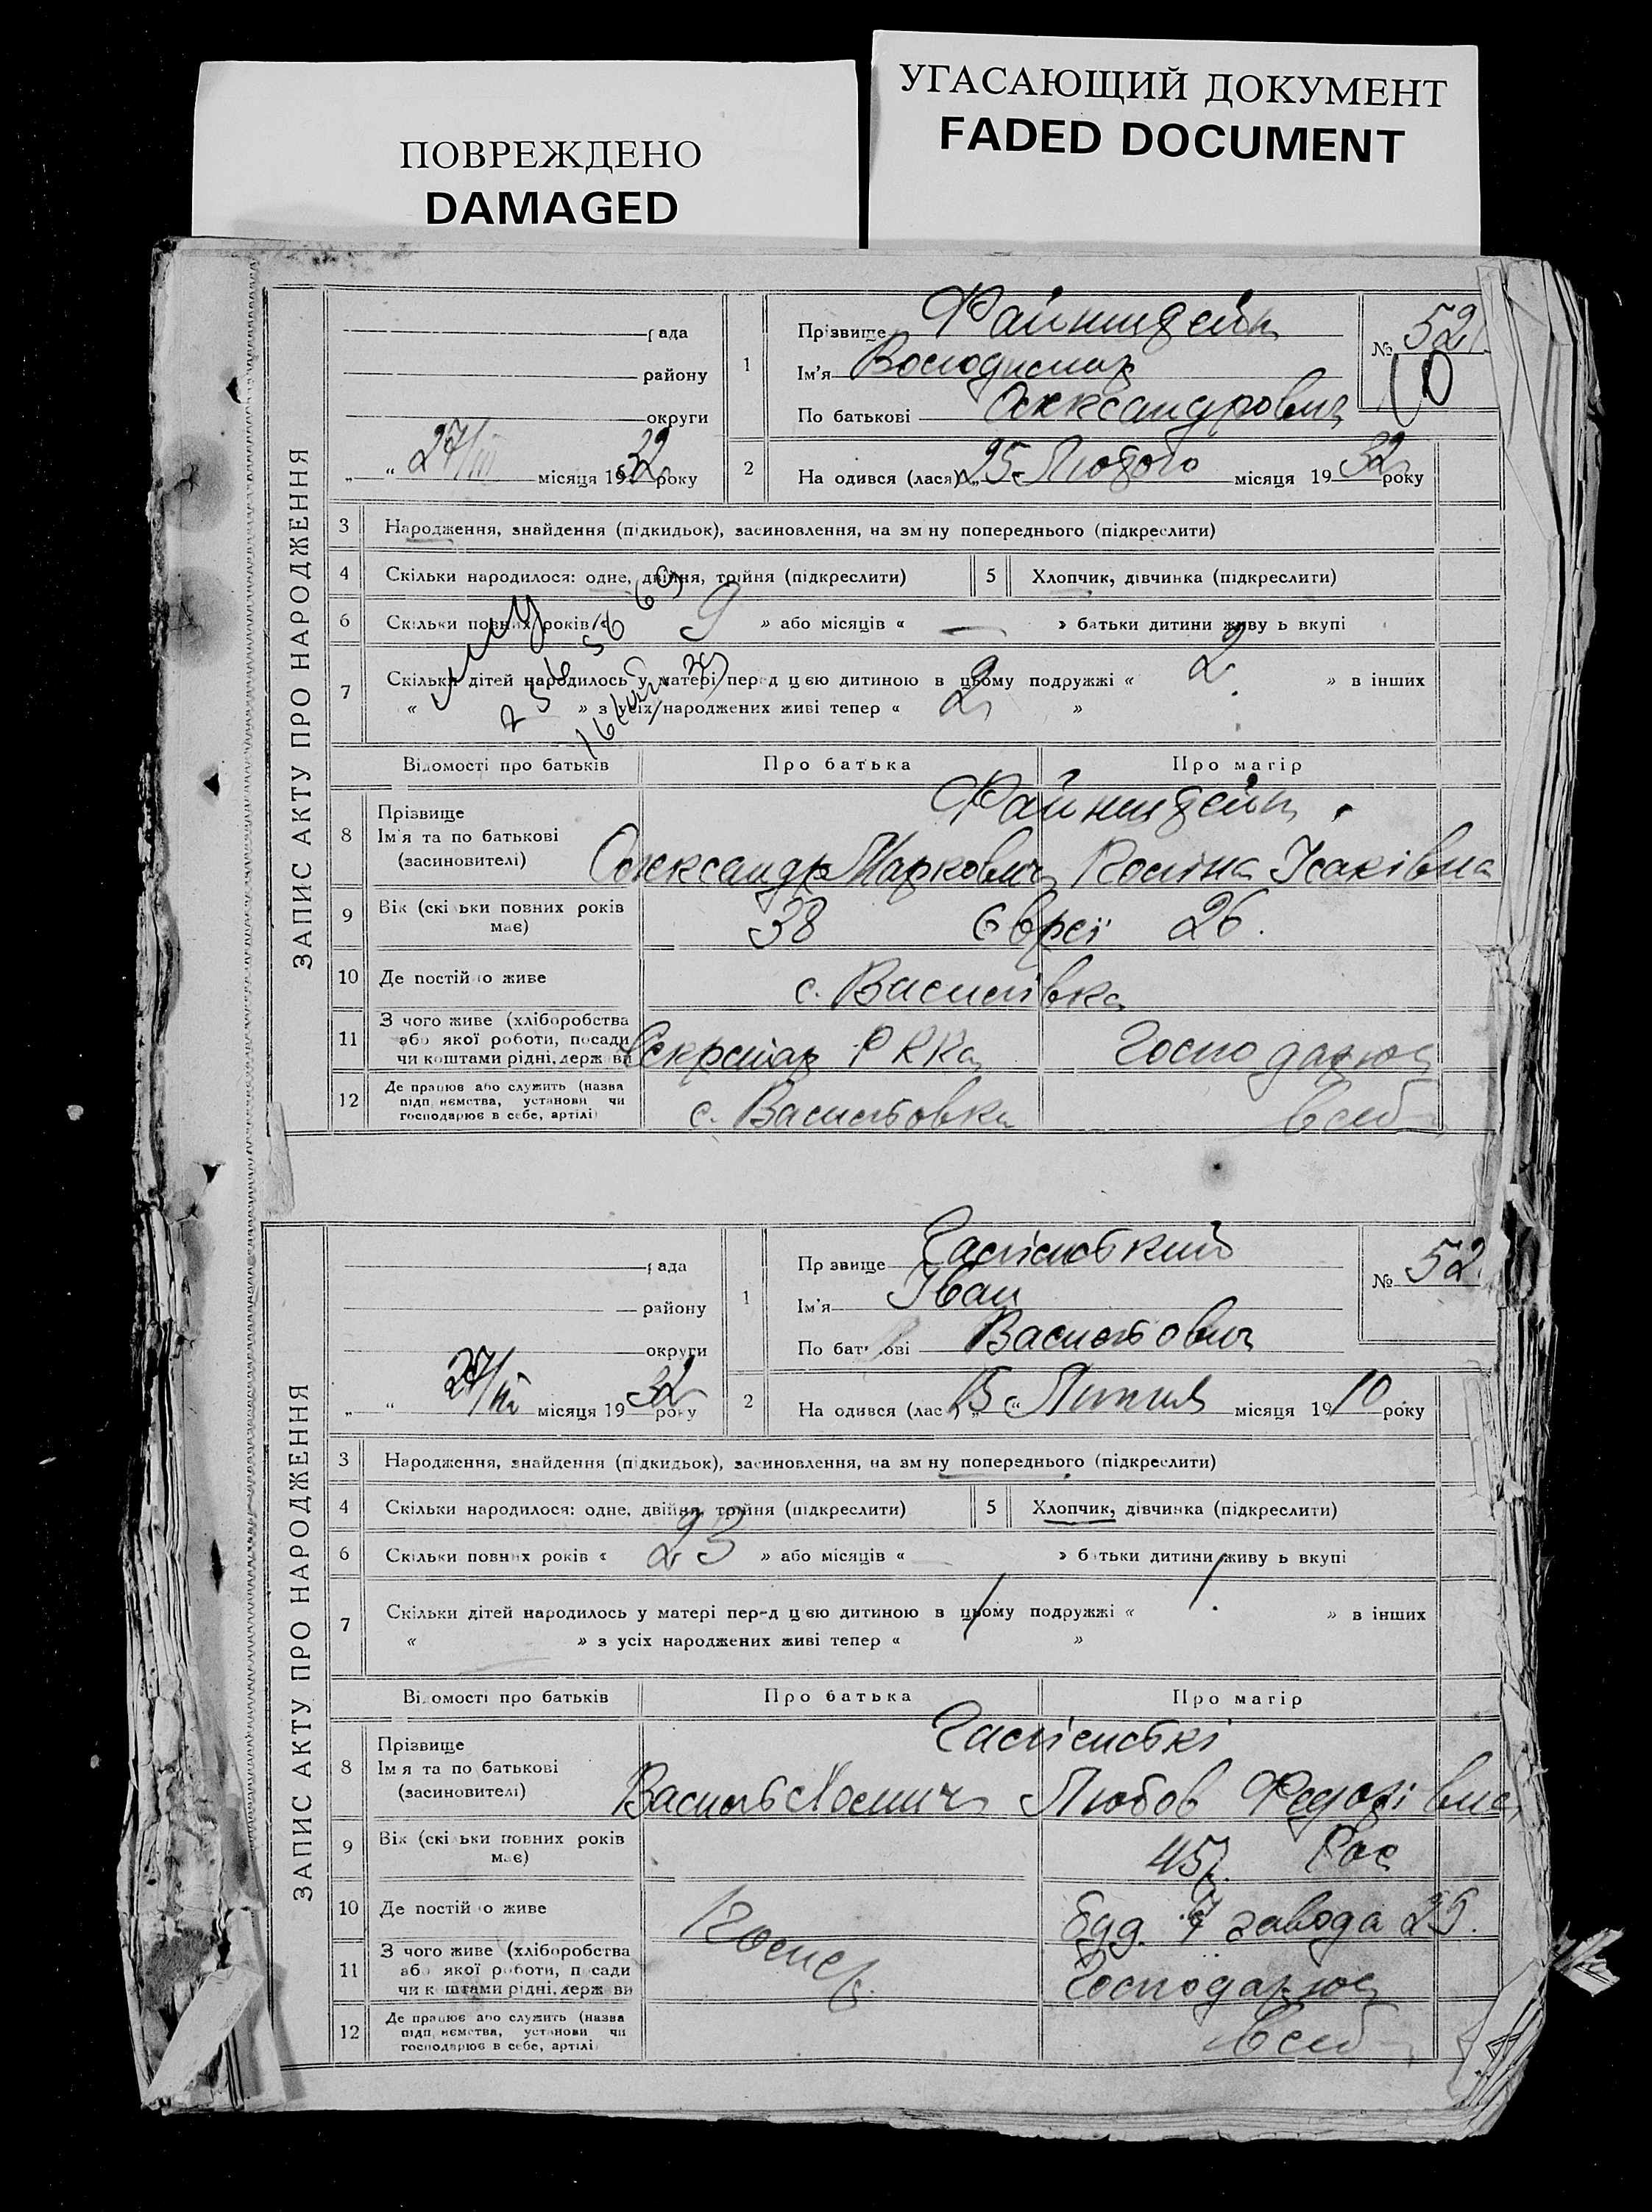 ПОВРЕЖДЕНО
DAMAGED
УГАСАЮЩИЙ ДОКУМЕНТ
FADED DOCUMENT
ЗАПИС АКТУ ПРО НАРОДЖЕННЯ
рада
району
округи
„ “ 27/III місяця 1932 року
1
Прізвище Файнштейн
Ім'я Володимир
По батькові Олександрович
№ 52
2 На одився (лася) „25“ Лютого місяця 1932 року
3 Народження, знайдення (підкидьок), засиновлення, на зм ну попереднього (підкреслити)
4 Скільки народилося: одне, двійня, тройня (підкреслити) 5 Хлопчик, дівчинка (підкреслити)
6 Скільки повних років « 9 » або місяців « — » батьки дитини живу ь вкупі
7 Скільки дітей народилось у матері перед цією дитиною в цьому подружжі « 2 » в інших
« » з усіх народжених живі тепер « 2 »
Відомості про батьків Про батька Про матір
8 Прізвище
Ім'я та по батькові
(засиновителі)
Файнштейн
Олександр Маркович Исаківна
9 Вік (скі ьки повних років має) 38 Євреї 26.
10 Де постій о живе с. Василівка
11 З чого живе (хліборобства
або якої роботи, посади
чи коштами рідні, держ ви
Секретар РКК Господарює
12 Де працює або служить (назва
підп иємства, установи чи
господарює в себе, артілі)
с. Васильовка в себе
ЗАПИС АКТУ ПРО НАРОДЖЕННЯ
рада
району
округи
„ “ 27/III місяця 1932 року
1
Пр звище
Ім'я Іван
По бат ові Васильович
№ 52
2 На одився (лас ) „15“ Липня місяця 1910 року
3 Народження, знайдення (підкидьок), засиновлення, на зм ну попереднього (підкреслити)
4 Скільки народилося: одне, двійня, тройня (підкреслити) 5 Хлопчик, дівчинка (підкреслити)
6 Скільки повних років « 23 » або місяців « » батьки дитини живу ь вкупі
7 Скільки дітей народилось у матері перед цією дитиною в цьому подружжі « » в інших
« » з усіх народжених живі тепер « »
Відомості про батьків Про батька Про матір
8 Прізвище
Імя та по батькові
(засиновителі)
Василь Любов Федорівна
9 Вік (скі ьки повних років має) 45 Рос
10 Де постій о живе буд. 7 завода 25.
11 З чого живе (хліборобства
або якої роботи, посади
чи коштами рідні, держ ви
Господарює
12 Де працює або служить (назва
підп иємства, установи чи
господарює в себе, артілі)
в себе